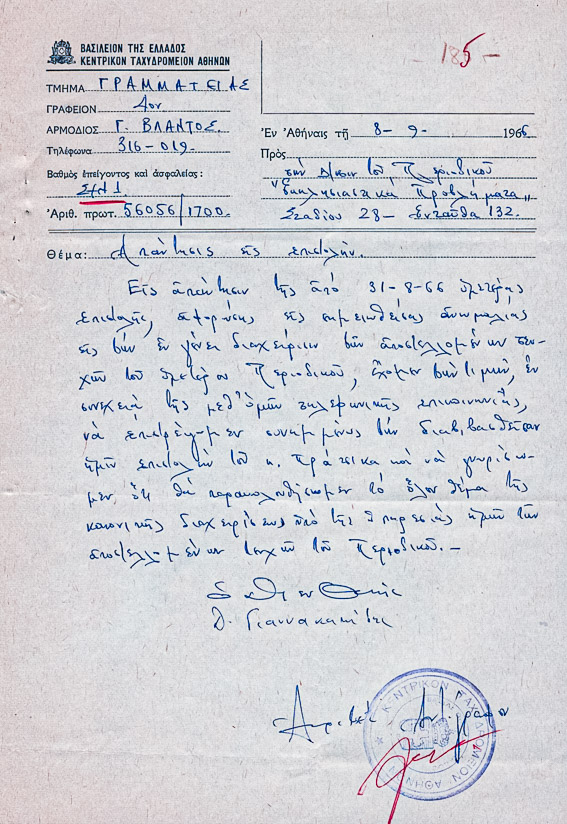 185-
ΒΑΣΙΛΕΙΟΝ ΤΗΣ ΕΛΛΑΔΟΣ
ΚΕΝΤΡΙΚΟΝ ΤΑΧΥΔΡΟΜΕΙΟΝ ΑΘΗΝΩΝ
ΤΜΗΜΑ ΓΡΑΜΜΑΤΕΙΑΣ
ΓΡΑΦΕΙΟΝ 4ον
ΑΡΜΟΔΙΟΣ Γ. ΒΛΑΝΤΟΣ
Τηλέφωνα 316-019
Βαθμὸς ἐπείγοντος καὶ ἀσφαλείας:
Ἀριθ. πρωτ. 56056/1700
Ἐν Ἀθήναις τῇ 8-9- 1966
Πρὸς
τὴν Δ/σιν τοῦ Περιοδικοῦ
"Ἐκκλησιαστικὰ Προβλήματα"
Σταδίου 28 - Ἐνταῦθα 132.
Θέμα: Ἀπάντησις εἰς ἐπιστολήν.
Εἰς ἀπάντησιν τῆς ἀπὸ 31-8-66 ὑμετέρας
ἐπιστολῆς, ἀφορώσης εἰς σημειωθείσας ἀνωμαλίας
εἰς τὴν ἐν γένει διαχείρισιν τῶν ἀποστελλομένων τευ-
χῶν τοῦ ὑμετέρου Περιοδικοῦ, ἔχομεν τὴν τιμήν, ἐν
συνεχείᾳ τῆς μεθ' ὑμῶν τηλεφωνικῆς ἐπικοινωνίας,
νὰ ἐπιστρέψωμεν συνημμένως τὴν διαβιβασθεῖσαν
ἡμῖν ἐπιστολὴν τοῦ κ. Πράτσικα καὶ νὰ γνωρίσω-
μεν ὅτι θὰ παρακολουθήσωμεν τὸ ὅλον θέμα τῆς
κανονικῆς διαχειρίσεως ὑπὸ τῆς Ὑπηρεσίας ἡμῶν τῶν
ἀποστελλομένων τευχῶν τοῦ Περιοδικοῦ.-
Ὁ Διευθυντής
Ἀκριβὲς Ἀντίγραφον
ΚΕΝΤΡΙΚΟΝ ΤΑΧΥΔΡΟΜΕΙΟΝ ΑΘΗΝΩΝ